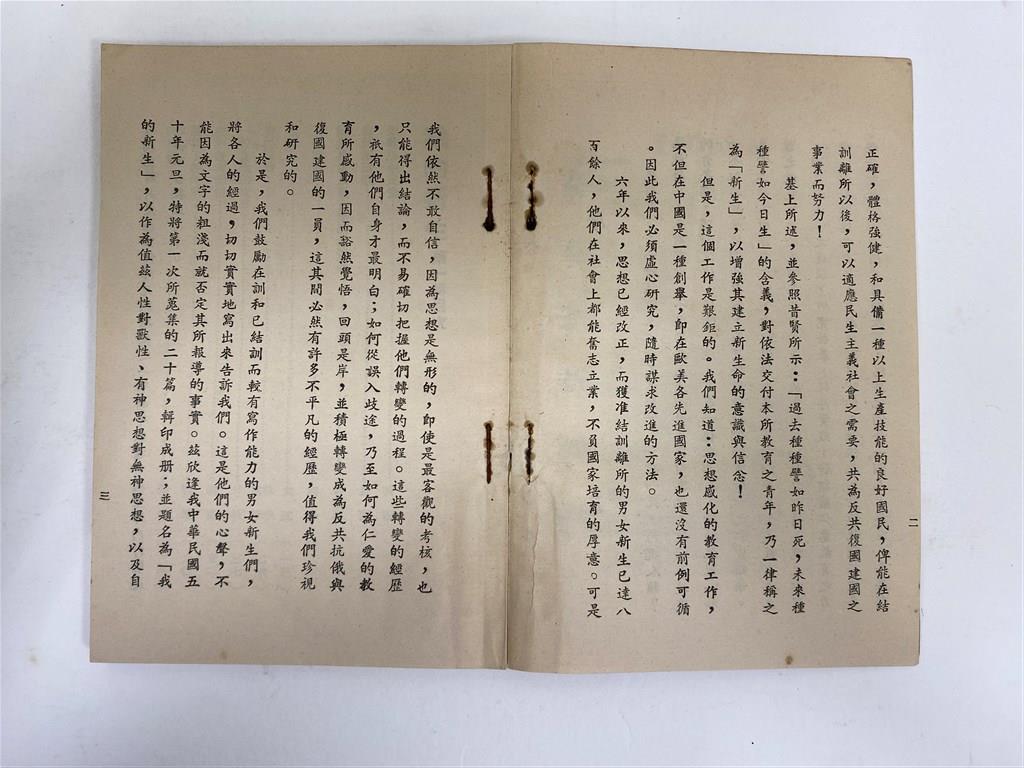 正確，體格強健，和具備一種以上生產技能的良好國民，俾能在結
訓離所以後，可以適應民生主義社會之需要，共為反共復國建國之
事業而努力！
基上所述，並參照昔賢所示：「過去種種譬如昨日死，未來種
種譬如今日生」的含義，對依法交付本所教育之青年，乃一律稱之
為「新生」，以增強其建立新生命的意識與信念！
但是，這個工作是艱鉅的。我們知道：思想感化的教育工作，
不但在中國是一種創舉，即在歐美各先進國家，也還沒有前例可循
。因此我們必須虛心研究，隨時謀求改進的方法。
六年以來，思想已經改正，而獲准結訓離所的男女新生已達八
百餘人，他們在社會上都能奮志立業，不負國家培育的厚意。可是
二
我們依然不敢自信，因為思想是無形的，即使是最客觀的考核，也
只能得出結論，而不易確切把握他們轉變的過程。這些轉變的經歷
，祇有他們自身才最明白；如何從誤入歧途，乃至如何為仁愛的教
育所感動，因而豁然覺悟，回頭是岸，並積極轉變成為反共抗俄與
復國建國的一員，這其間必然有許多不平凡的經歷，值得我們珍視
和研究的。
於是，我們鼓勵在訓和已結訓而較有寫作能力的男女新生們，
將各人的經過，切切實實地寫出來告訴我們。這是他們的心聲，不
能因為文字的粗淺而就否定其所報導的事實。茲欣逢我中華民國五
十年元旦，特將第一次所蒐集的二十篇，輯印成册；並題名為「我
的新生」，以作為值茲人性對獸性、有神思想對無神思想，以及自
三